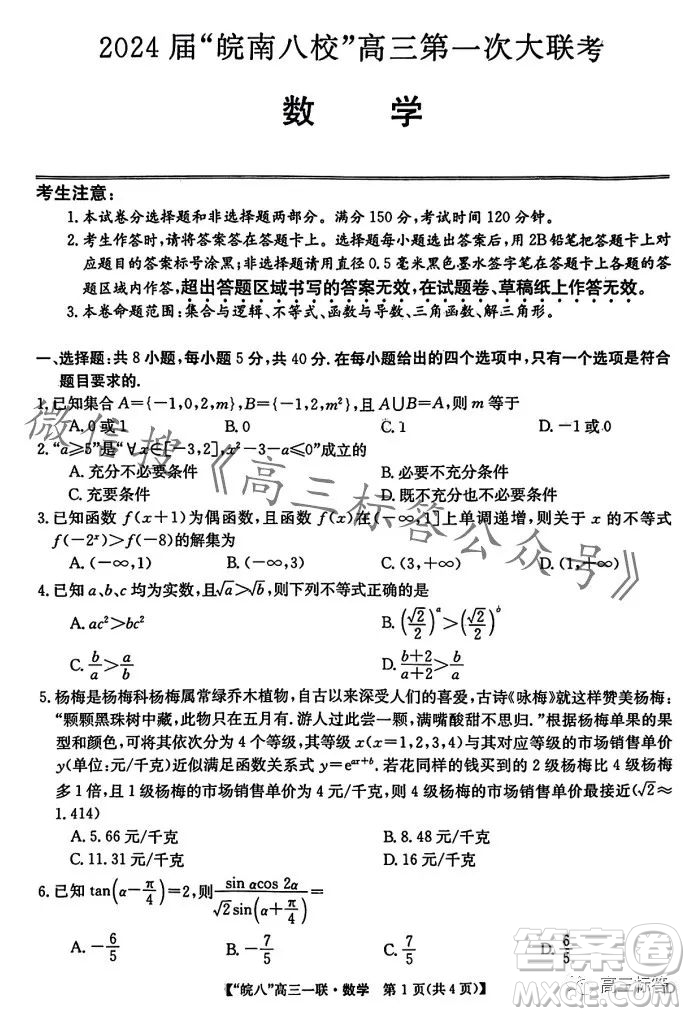 2024 届“皖南八校”高三第一次大联考
数 学
考生注意:
1. 本试卷分选择题和非选择题两部分。满分 150 分,考试时间 120 分钟。
2. 考生作答时,请将答案答在答题卡上。选择题每小题选出答案后,用 2B 铅笔把答题卡上对
应题目的答案标号涂黑;非选择题请用直径 0.5 毫米黑色墨水签字笔在答题卡上各题的答
题区域内作答,超出答题区域书写的答案无效,在试题卷、草稿纸上作答无效。
3. 本卷命题范围:集合与逻辑、不等式、函数与导数、三角函数、解三角形。
一、选择题:共 8 小题,每小题 5 分,共 40 分.在每小题给出的四个选项中,只有一个选项是符合
题目要求的.
1. 已知集合 A={-1,0,2,m},B={-1,2,m²},且 A∪B=A,则 m 等于
A. 0 或 1 B. 0 C. 1 D. -1 或 0
2. “a≥5”是“∀x∈[-3,2],x²-3-a≤0”成立的
A. 充分不必要条件 B. 必要不充分条件
C. 充要条件 D. 既不充分又不必要条件
3. 已知函数 f(x+1) 为偶函数,函数 f(x)在(-∞,1]上单调递增,则关于 x 的不等式
f(-2ˣ)>f(-8)的解集为
A. (-∞,1) B. (-∞,3) C. (3,+∞) D. (1,+∞)
4. 已知 a、b、c 均为实数,且√a>√b,则下列不等式正确的是
A. ac²>bc² B. (√2/2)^a>(√2/2)^b
C. b/a>a/b D. (b+2)/(a+2)>b/a
5. 杨梅是杨梅科杨梅属常绿乔木植物,自古以来深受人们的喜爱,古诗《咏梅》就这样赞美杨梅:
“颗颗黑珠树中藏,此物只在五月有.游人过此尝一颗,满嘴酸甜不思归.”根据杨梅单果的果
型和颜色,可将其依次分为 4 个等级,其等级 x(x=1,2,3,4)与其对应等级的市场销售单价
y(单位:元/千克)近似满足函数关系式 y=e^(ax+b). 若花同样的钱买到的 2 级杨梅比 4 级杨梅
多 1 倍,且 4 级杨梅的市场销售单价为 4 元/千克,则 1 级杨梅的市场销售单价约为(√2≈
1.414)
A. 5.66 元/千克 B. 8.48 元/千克
C. 11.31 元/千克 D. 16 元/千克
6. 已知 tan(α-π/4)=2,则 (sin αcos 2α)/(√2sin(α+π/4))=
A. -6/5 B. -7/5 C. 7/5 D. 6/5
【“皖八”高三一联·数学 第 1 页(共 4 页)】
微信搜《高三标答公众号》
答案圈
高三标答